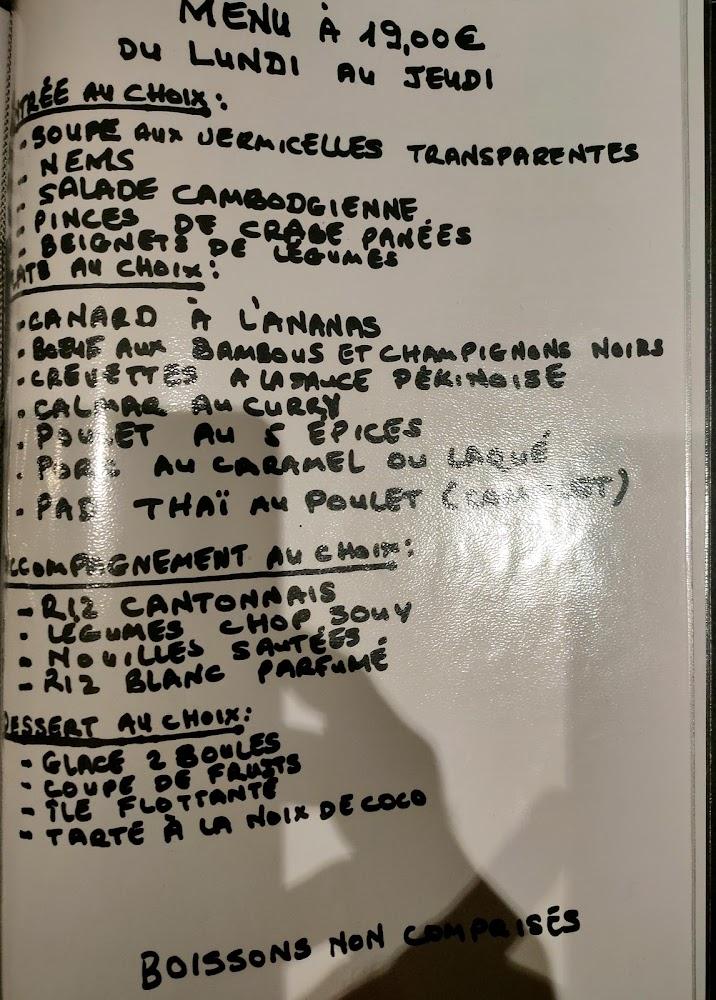 MENU À 19,00€
DU LUNDI AU JEUDI
TRÉE AU CHOIX:
. SOUPE AUX VERMICELLES TRANSPARENTES
. NEMS
. SALADE CAMBODGIENNE
. PINCES DE CRABE PANÉES
. BEIGNETS DE LÉGUMES
LATS AU CHOIX:
. CANARD À L'ANANAS
. BOEUF AUX BAMBOUS ET CHAMPIGNONS NOIRS
. CREVETTES A LA SAUCE PÉKINOISE
. CALMAR AU CURRY
. POULET AU 5 EPICES
. PORC AU CARAMEL OU LAQUÉ
. PAD THAÏ AU POULET
CCOMPAGNEMENT AU CHOIX:
- RIZ CANTONNAIS
. LÉGUMES CHOP SOUY
- NOUILLES SAUTÉES
- RIZ BLANC PARFUMÉ
DESSERT AU CHOIX:
- GLACE 2 BOULES
- COUPE DE FRUITS
- ÎLE FLOTTANTE
- TARTE À LA NOIX DE COCO
BOISSONS NON COMPRISES